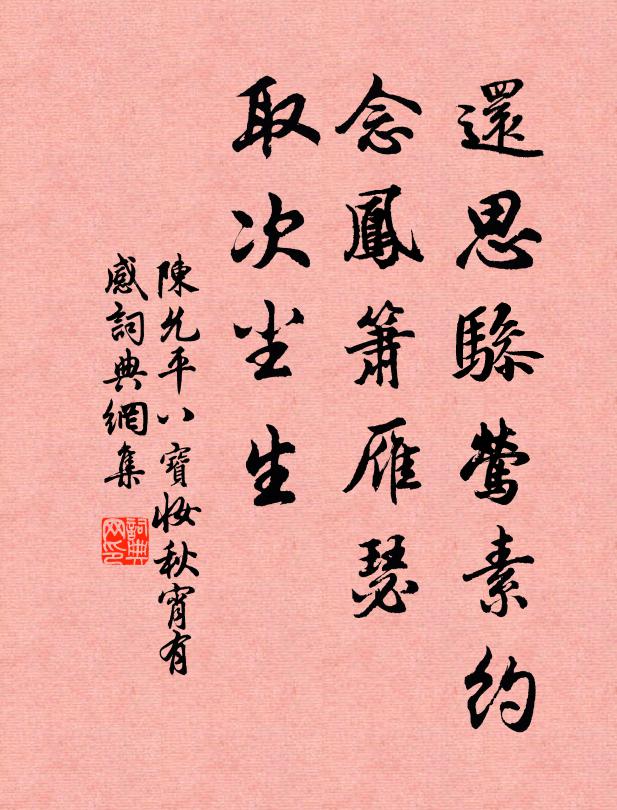 還思驂鸞素約
念鳳簫雁瑟
取次尘生
陳允平八寶妝秋宵有
感詞典網集
詞典
网印